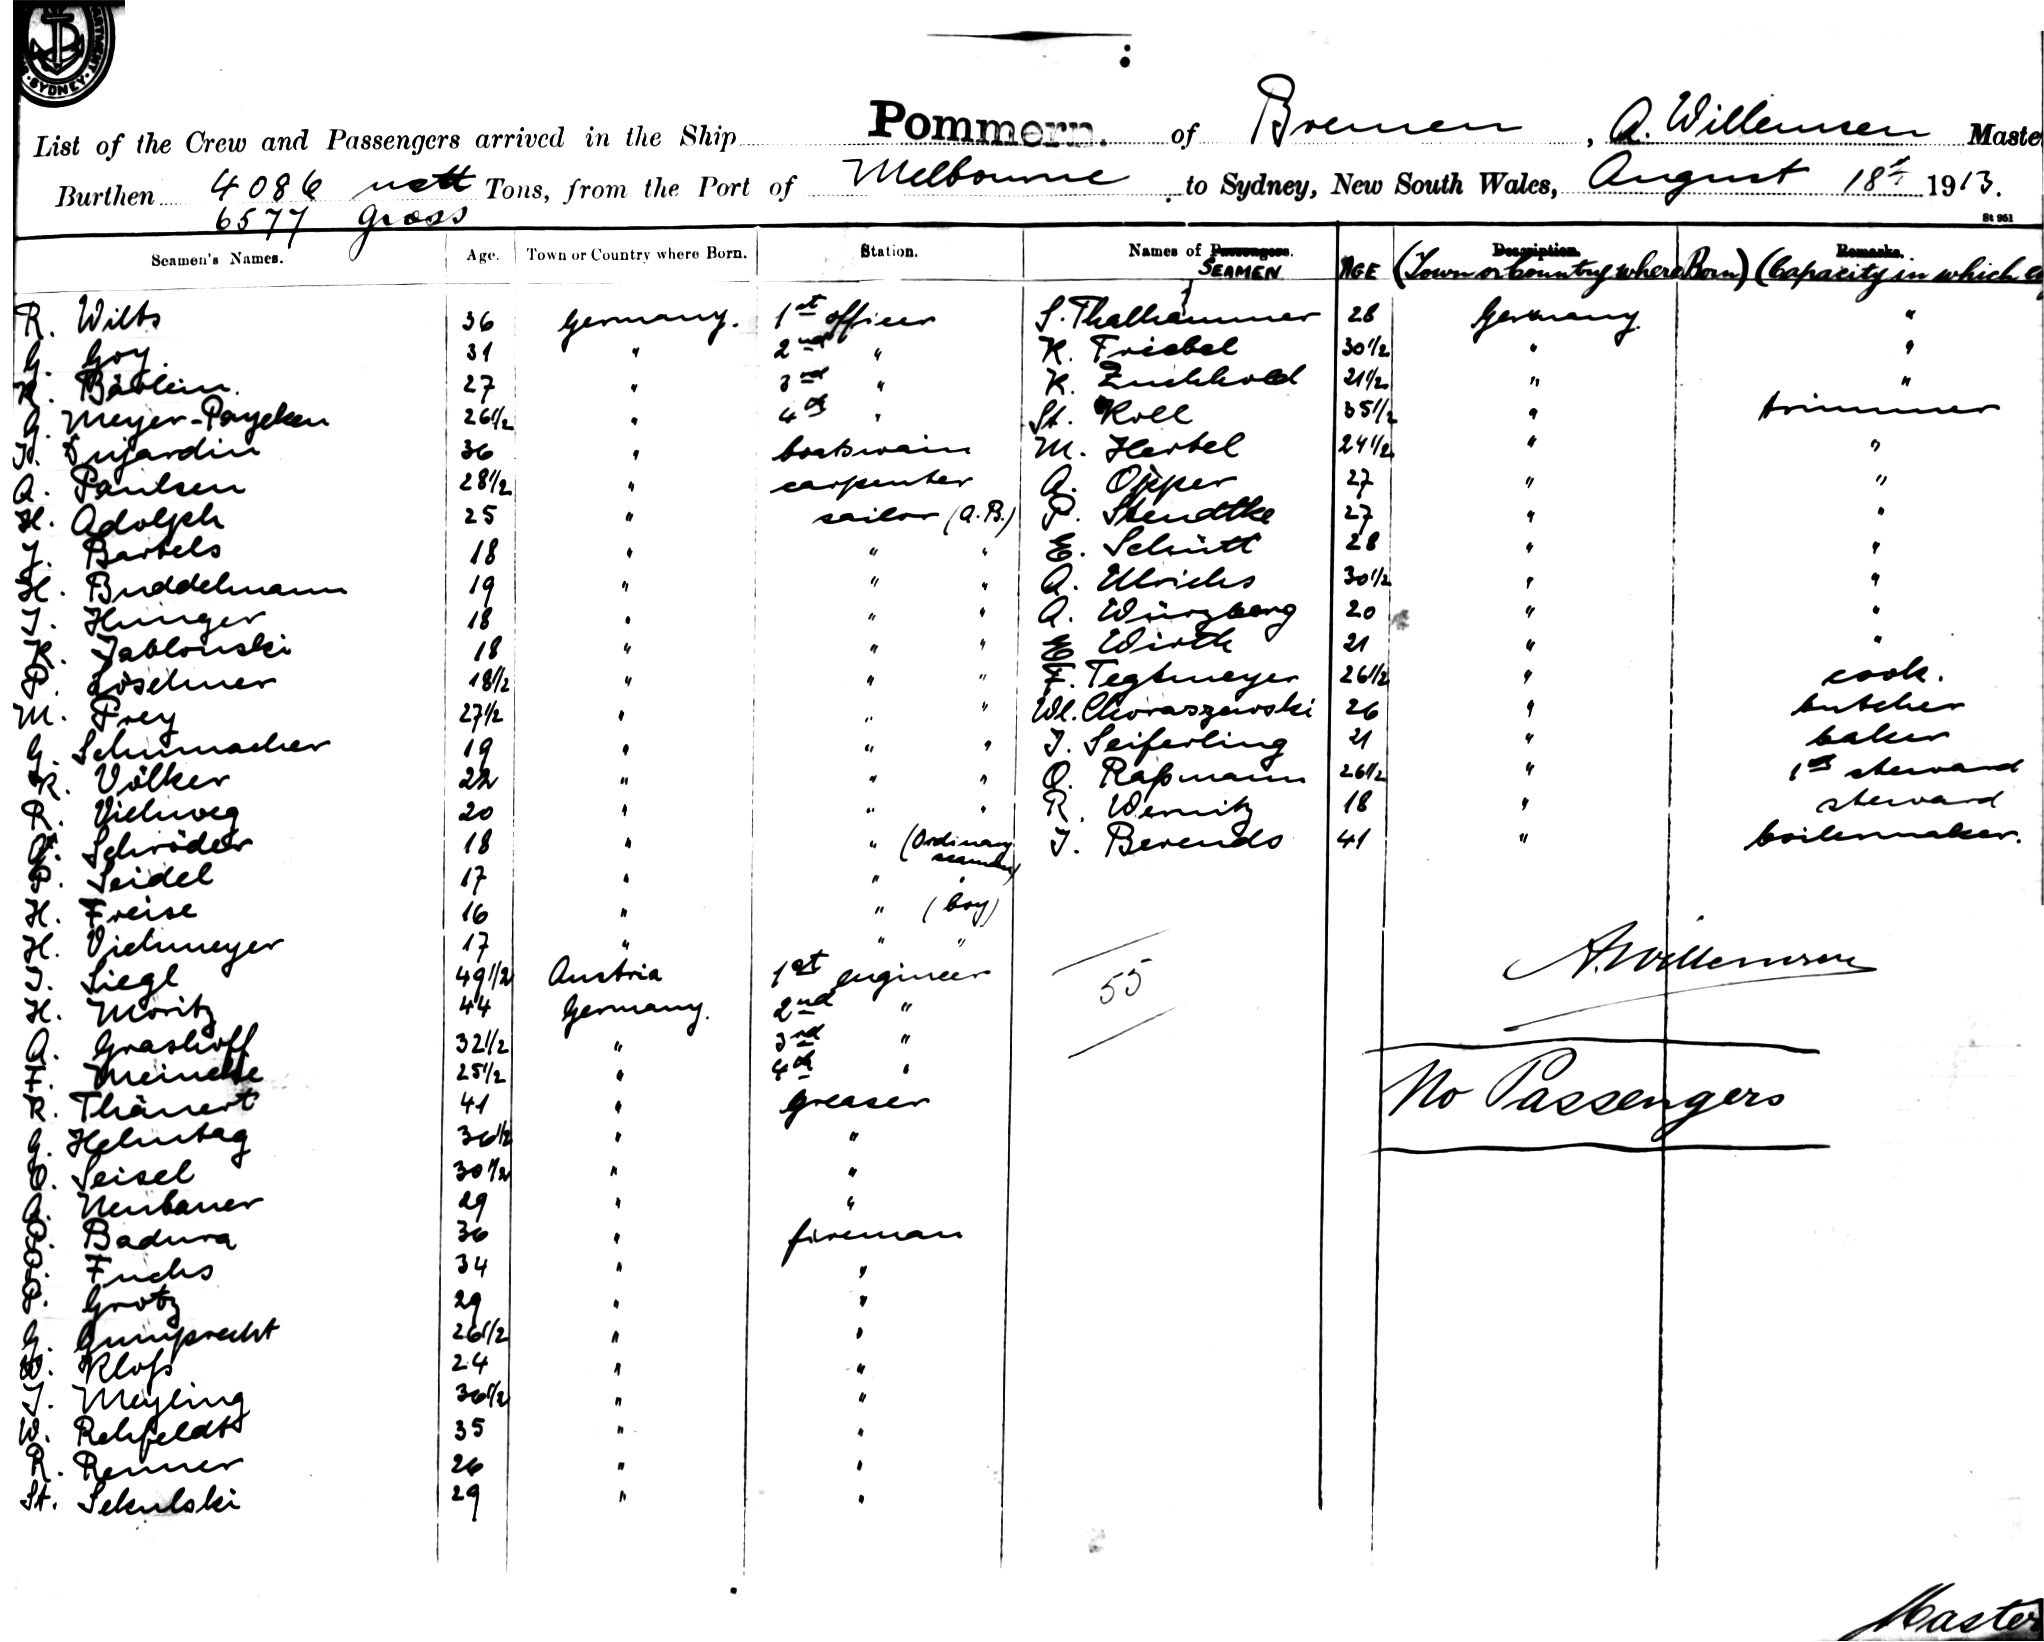 SYDNEY
Pommern. of Bremen, A. Willemsen Maste
List of the Crew and Passengers arrived in the Ship
Burthen 4086 nett Tons, from the Port of Melbourne to Sydney, New South Wales, August 18th 1913.
6577 gross
St 951
Seamen's Names. Age. Town or Country where Born. Station. Names of Passengers. Description. Remarks.
SEAMEN AGE (Town or Country where Born) (Capacity in which
R. Wilts 36 Germany. 1st officer S. Thalhammer 28 Germany "
G. Goy. 31 " 2nd " K. Friebel 30 1/2 " "
K. 27 " 3rd " K. Zuckhold 21 1/2 " "
G. Meyer-Payeken 26 1/2 " 4th " St. Koll 35 1/2 " trimmer
Dujardin 36 " boatswain M. Hertel 24 1/2 " "
A. Paulsen 28 1/2 " carpenter A. Opper 27 " "
H. Adolph 25 " sailor (A.B.) P. Stendtke 27 " "
J. Bartels 18 " " " E. Schütt 28 " "
H. Buddelmann 19 " " " A. Ulrichs 30 1/2 " "
J. Hunger 18 " " " A. Würzberg 20 " "
K. Jablonski 18 " " " E. Wirth 21 " "
P. Löschner 18 1/2 " " " F. Tegtmeyer 26 1/2 " cook.
M. Frey 27 1/2 " " " Wl. Choraszewski 26 " butcher
G. Schumacher 19 " " " J. Seiferling 21 " baker
K. Völker 22 " " " O. Raßmann 26 1/2 " 1st steward
R. Viehweg 20 " " " R. Wernitz 18 " steward
Schröder 18 " " (Ordinary seaman) J. Berends 41 " boilermaker.
P. Seidel 17 " " "
H. Freise 16 " " (boy)
H. Viehmeyer 17 " " "
J. Siegl 49 1/2 Austria 1st engineer
H. Moritz 44 Germany. 2nd "
A. Grashoff 32 1/2 " 3rd "
F. Meinecke 25 1/2 " 4th "
R. Thänert 41 " greaser
G. Helmtag 36 1/2 " "
O. Seisel 30 1/2 " "
A. Neubauer 29 " "
P. Badura 36 " fireman
P. Fuchs 34 " "
P. Grotz 29 " "
G. Gumprecht 26 1/2 " "
W. Kloß 24 " "
J. Meyling 36 1/2 " "
W. Rehfeldt 35 " "
R. Renner 26 " "
St. Sekulski 29 " "
55
A. Willemsen
No Passengers
Master